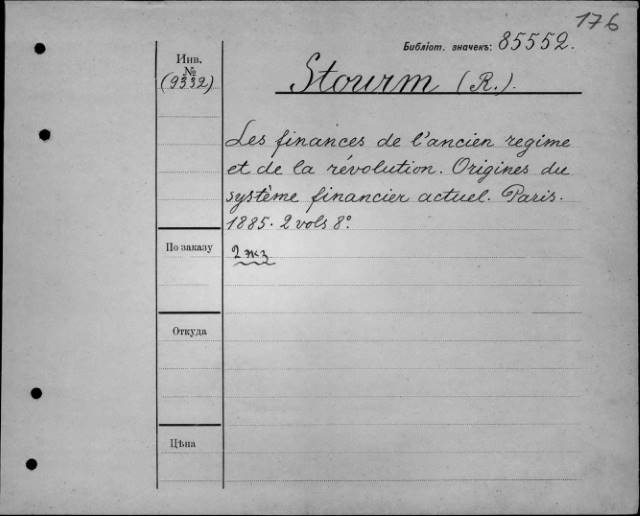 176
Библіот. значекъ: 85552.
Инв.
№
(9332)
Stourm (R.).
Les finances de l'ancien regime
et de la révolution. Origines du
système financier actuel. Paris.
1885. 2 vols 8°.
По заказу
2 экз
Откуда
Цѣна